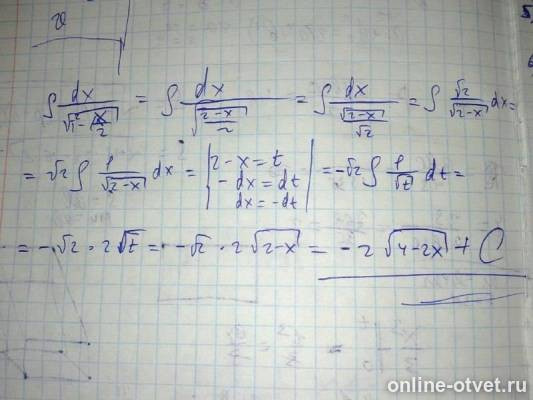 ∫ dx/√(1-x/2) = ∫ dx/√((2-x)/2) = ∫ dx/(√(2-x)/√2) = ∫ √2/√(2-x) dx =
= √2 ∫ 1/√(2-x) dx = | 2-x=t
-dx=dt
dx=-dt | = -√2 ∫ 1/√t dt =
= -√2 · 2√t = -√2 · 2√(2-x) = -2√(4-2x) + C
online-otvet.ru